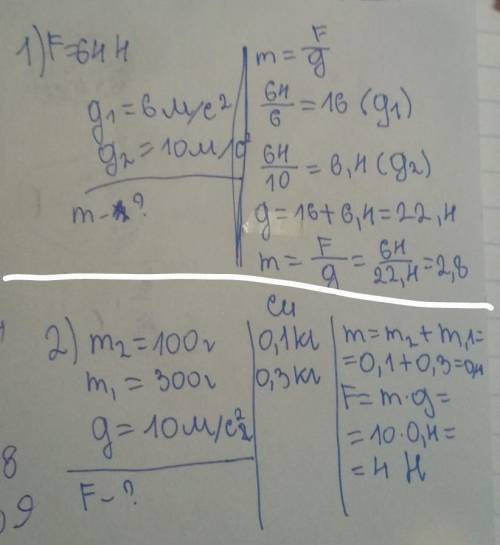 1) F=64 Н
g₁=6 м/с²
g₂=10 м/с²
m-?
m=F/g
64/6=16 (g₁)
64/10=6,4 (g₂)
g=16+6,4=22,4
m=F/g=64/22,4=2,8
2) m₂=100г
m₁=300г
g=10м/с²
F-?
си
0,1кг
0,3кг
m=m₂+m₁=
=0,1+0,3=0,4
F=m·g=
=10·0,4=
=4 Н
8
9